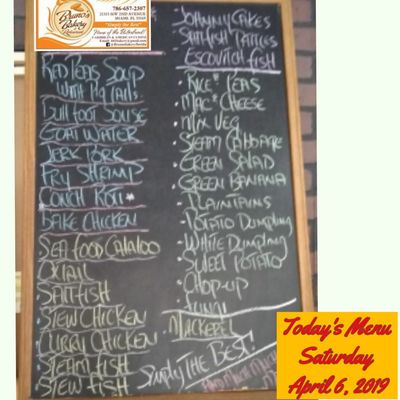 786-657-2307
MIAMI, FL
Bruno's
Bakery
& Restaurant
"Simply the Best"
CARIBBEAN & AMERICAN CUISINE
RED PEAS SOUP
WITH PIG TAILS
BULL FOOT SOUSE
GOAT WATER
JERK PORK
FRY SHRIMP
CONCH ROTI *
BAKE CHICKEN
SEA FOOD CALALOO
OXTAIL
SALTFISH
STEW CHICKEN
CURRY CHICKEN
STEAM FISH
STEW FISH
JOHNNY CAKES
SALTFISH PATTIES
ESCOVITCH FISH
RICE & PEAS
MAC & CHEESE
MIX VEG
STEAM CABBAGE
GREEN SALAD
GREEN BANANA
PLAINTAINS
POTATO DUMPLING
WHITE DUMPLING
SWEET POTATO
CHOP-UP
FUNGI
MACKEREL
SIMPLY THE BEST!
Today's Menu
Saturday
April 6, 2019